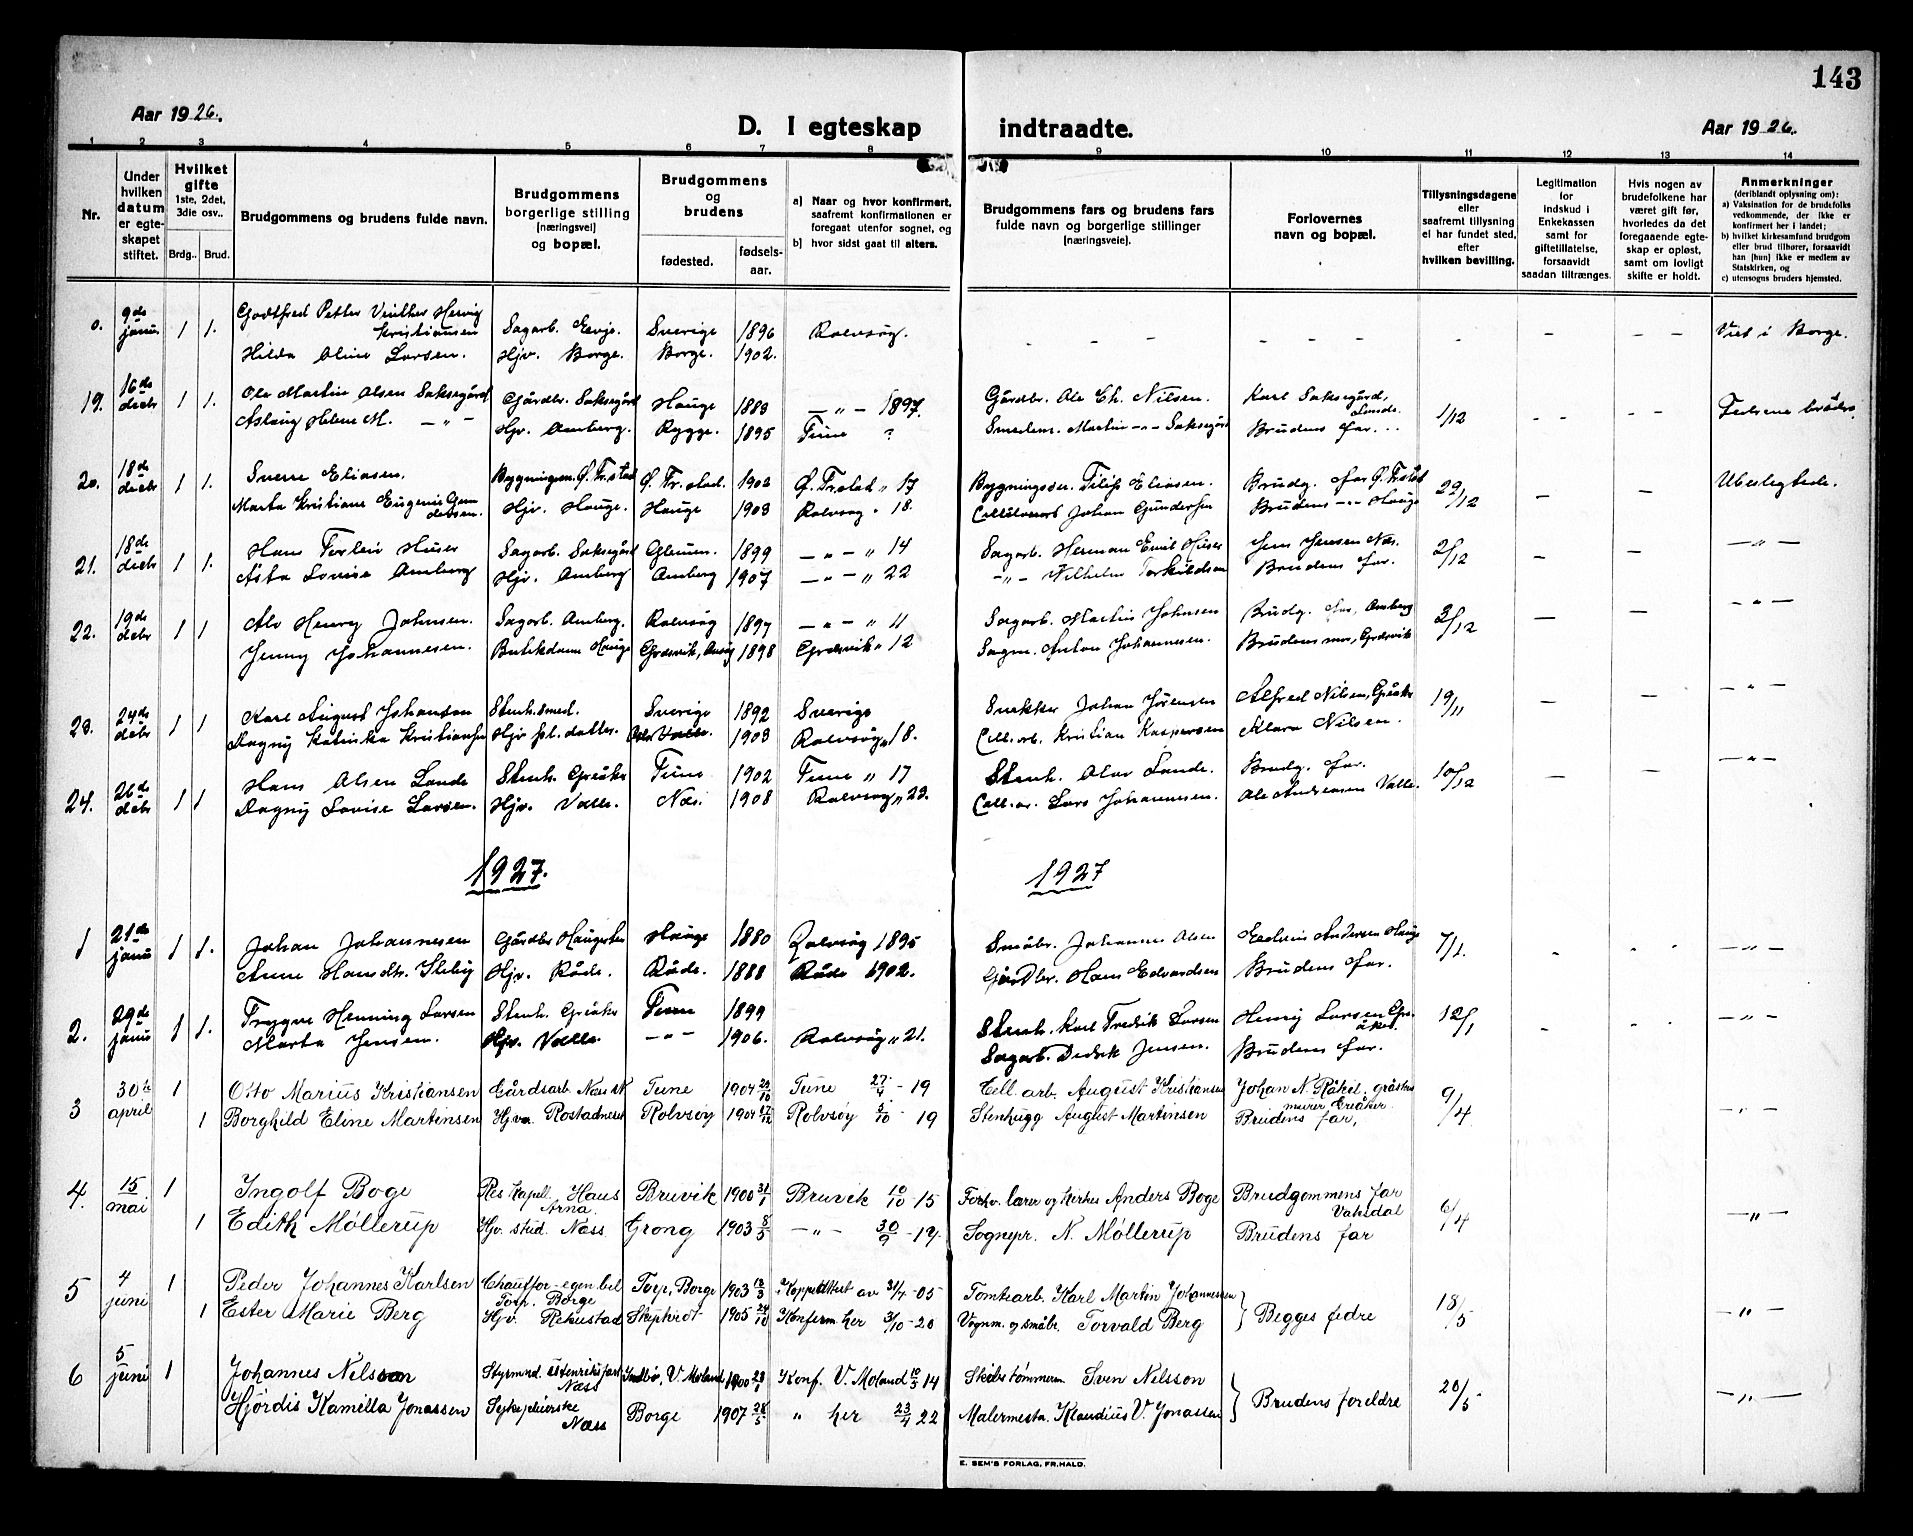 143
Aar 1926.
D. I egteskap indtraadte.
Aar 1926.
1 2 3 4 5 6 7 8 9 10 11 12 13 14
Nr.
Under hvilken datum er egteskapet stiftet.
Hvilket gifte 1ste, 2det, 3die osv..
Brdg.. Brud.
Brudgommens og brudens fulde navn.
Brudgommens borgerlige stilling (næringsvei) og bopæl.
Brudgommens og brudens
fødested. fødselsaar.
a) Naar og hvor konfirmert, saafremt konfirmationen er foregaat utenfor sognet, og
b) hvor sidst gaat til alters.
Brudgommens fars og brudens fars fulde navn og borgerlige stillinger (næringsveie).
Forlovernes navn og bopæl.
Tillysningsdagene eller saafremt tillysning ei har fundet sted, efter hvilken bevilling.
Legitimation for indskud i Enkekassen samt for giftetillatelse, forsaavidt saadan tiltrænges.
Hvis nogen av brudefolkene har været gift før, hvorledes da det foregaaende egteskap er opløst, samt om lovligt skifte er holdt.
Anmerkninger (deriblandt oplysning om):
a) Vaksination for de brudefolks vedkommende, der ikke er konfirmert her i landet;
b) hvilket kirkesamfund brudgom eller brud tilhører, forsaavidt han (hun) ikke er medlem av Statskirken, og
c) utensogns bruders hjemsted.
0. 9de janu 1 1. Godtfred Petter Kristiansen Sagarb. Sverige 1896 Rolvsøy. – – – – – – – – – Viet i Borge.
Hilda Oline Larsen. Hjv. Borge. Borge. 1902.
19. 16de decbr 1 1. Ole Martin Olsen Saksegård Gårdbr. Saksegård Hauge 1883 – " – 1897. Gårdbr. Ole Ch. Nilsen. Karl Saksegård, 1/12 - -
Aslaug Helene M. – " – Hjv. Amberg. Rygge. 1895 Tune ? Martin – " – Saksegård Brudens far.
20. 18de decbr 1 1. Sverre Eliasen. Ø. Fr.stad Ø. Fr.stad. 1902 Ø. Fr.stad " 17 Eliasen. Brudg. far Ø. Fr.stad 29/12 – – Ubeslegtede.
Marta Kristiane Eugenie Gundersen. Hjv. Hauge. Hauge 1903 Rolvsøy " 18. Johan Gundersen Brudens – " – Hauge
21. 18de decbr 1 1. Hans Huser Sagarb. Saksegård Glemm. 1899 – " – " 14 Sagarb. Herman Emil Huser Jens Jensen Næs. 2/12 – – – " –
Asta Lovise Amberg Hjv. Amberg Amberg 1907 – " – " 22 – " – Wilhelm Torkildsen Brudens far.
22. 19de decbr 1 1 Henry Johnsen. Sagarb. Amberg. Rolvsøy 1897 – " – " 11 Sagarb. Martin Johnsen Brudg. far, Amberg 3/12 – – – " –
Jenny Johannesen. Butikdame Hauge Græsvik, Onsøy 1898 Græsvik " 12 Sagm. Anton Johannesen. Brudens mor, Græsvik
23. 24de decbr 1 1 Karl August Johansson Stenh. smed. Sverige 1892 Sverige Snekker Johan Alfred Nilsen, Greåker 19/11 – – – " –
Dagny Katinka Kristiansen Hjv. 1903 Rolvsøy " 18. Cell. arb. Kristian Kaspersen Klara Nilsen.
24. 26de decbr 1 1 Hans Olsen Lande Stenh. Greåker Tune 1902 Tune " 17 Stenh. Olav Lande. Brudg. far. 10/12 – – – " –
Dagny Lovise Larsen. Hjv. Valle. Næs. 1908 Rolvsøy " 23. Cell. ar. Lars Johannesen. Ole Andreasen Valle.
1927. 1927
1 21de janu 1 1. Johan Johannesen Gårdbr Haugesten Hauge 1880 Rolvsøy 1895 Småbr. Johannes Olsen Edvin Andersen Hauge 7/1. – " –
Anne Hansdtr. Hjv. Råde. Råde. 1888 Råde 1902. Gårdbr. Hans Edvardsen Brudens far.
2. 29de janu 1 1. Trygve Henning Larsen Stenh. Greåker Tune 1899 Stenh. Karl Fredrik Larsen Henry Larsen Greåker. 12/1 - - – " –
Marta Jensen. Hjv. Valle – " – 1906. Rolvsøy " 21. Sagarb. Jensen. Brudens far.
3 30te april 1 Otto Marius Kristiansen Gårdsarb. Tune 1904 Tune 27/4 - 19 Cell. arb. August Kristiansen Johan N. Råkil, gråstensmurer Greåker 9/4 – " –
1 Borghild Eline Martinsen Hjv. Rostadneset Rolvsøy 1904 17/12 Rolvsøy 5/10 - 19 Stenhugg August Martinsen Brudens far,
4. 15 mai 1 Ingolf Boge Res kapell. Haus Arna. Bruvik 1900 31/1 Bruvik 10/10 - 15 Forhv. lærer og kirkes Anders Boge Brudgommens far Vaksdal 6/4 – " –
1 Edith Møllerup Hjv. stud. Næss Grong 1903 8/5 – " – 30/9 - 19. Sognepr. N. Møllerup Brudens far
5 4 juni 1 Peder Johannes Karlsen Chauffør - egen bil Torp. Borge Torp, Borge 1903 13/3 Koppeattest av 31/4 - 05 Tomtearb. Karl Martin Johannessen } Begges fedre 18/5 – " –
1 Ester Marie Berg Hjv. Hekustad Skiptvedt 1905 24/10 Konferm her 31/10 - 20 Vognm. og småbr. Torvald Berg
6 5 juni 1 Johannes Nilsson Styrmand utenriksfart Næss V. Moland 1900 23/1 Konf. V. Moland 14 Skibstømmerm Sven Nilsson } Brudens foreldre 20/5 – " –
Hjørdis Kamilla Jonassen Sykepleierske Næss Borge 1907 28/5 " her 23/4 22 Malermestr. Klaudius V. Jonassen
E. SEM'S FORLAG, FR.HALD.